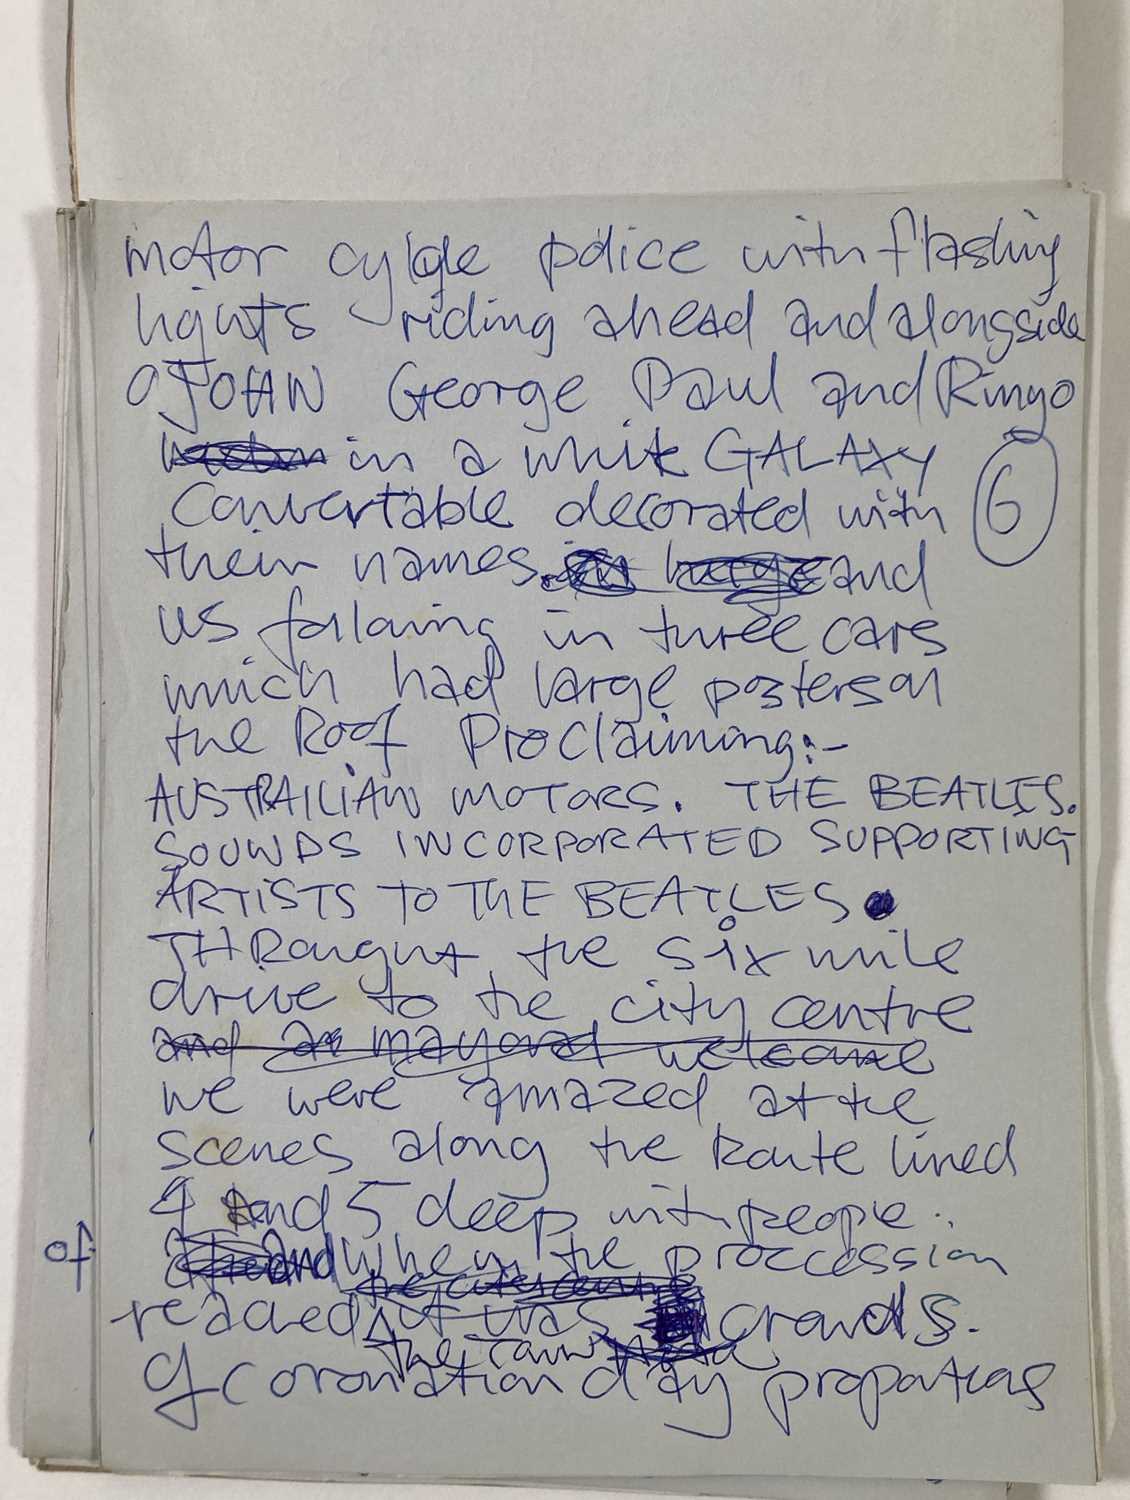 motor cylcle police with flashing
lights riding ahead and alongside
JOHN George Paul and Ringo
in a white GALAXY
Convertable decorated with
6
their names. in large and
us follwing in three cars
which had large posters on
the Roof Proclaiming:-
AUSTRAILIAN MOTORS. THE BEATLES.
SOUNDS INCORPORATED SUPPORTING
ARTISTS TO THE BEATLES
THRoughut the six mile
drive to the city centre
and a mayoral welcome
we were amazed at the
scenes along the Route lined
4 and 5 deep with people.
of
and when the proccession
the city centre
reached it was crowds.
the town Hall
of coronation day propotions